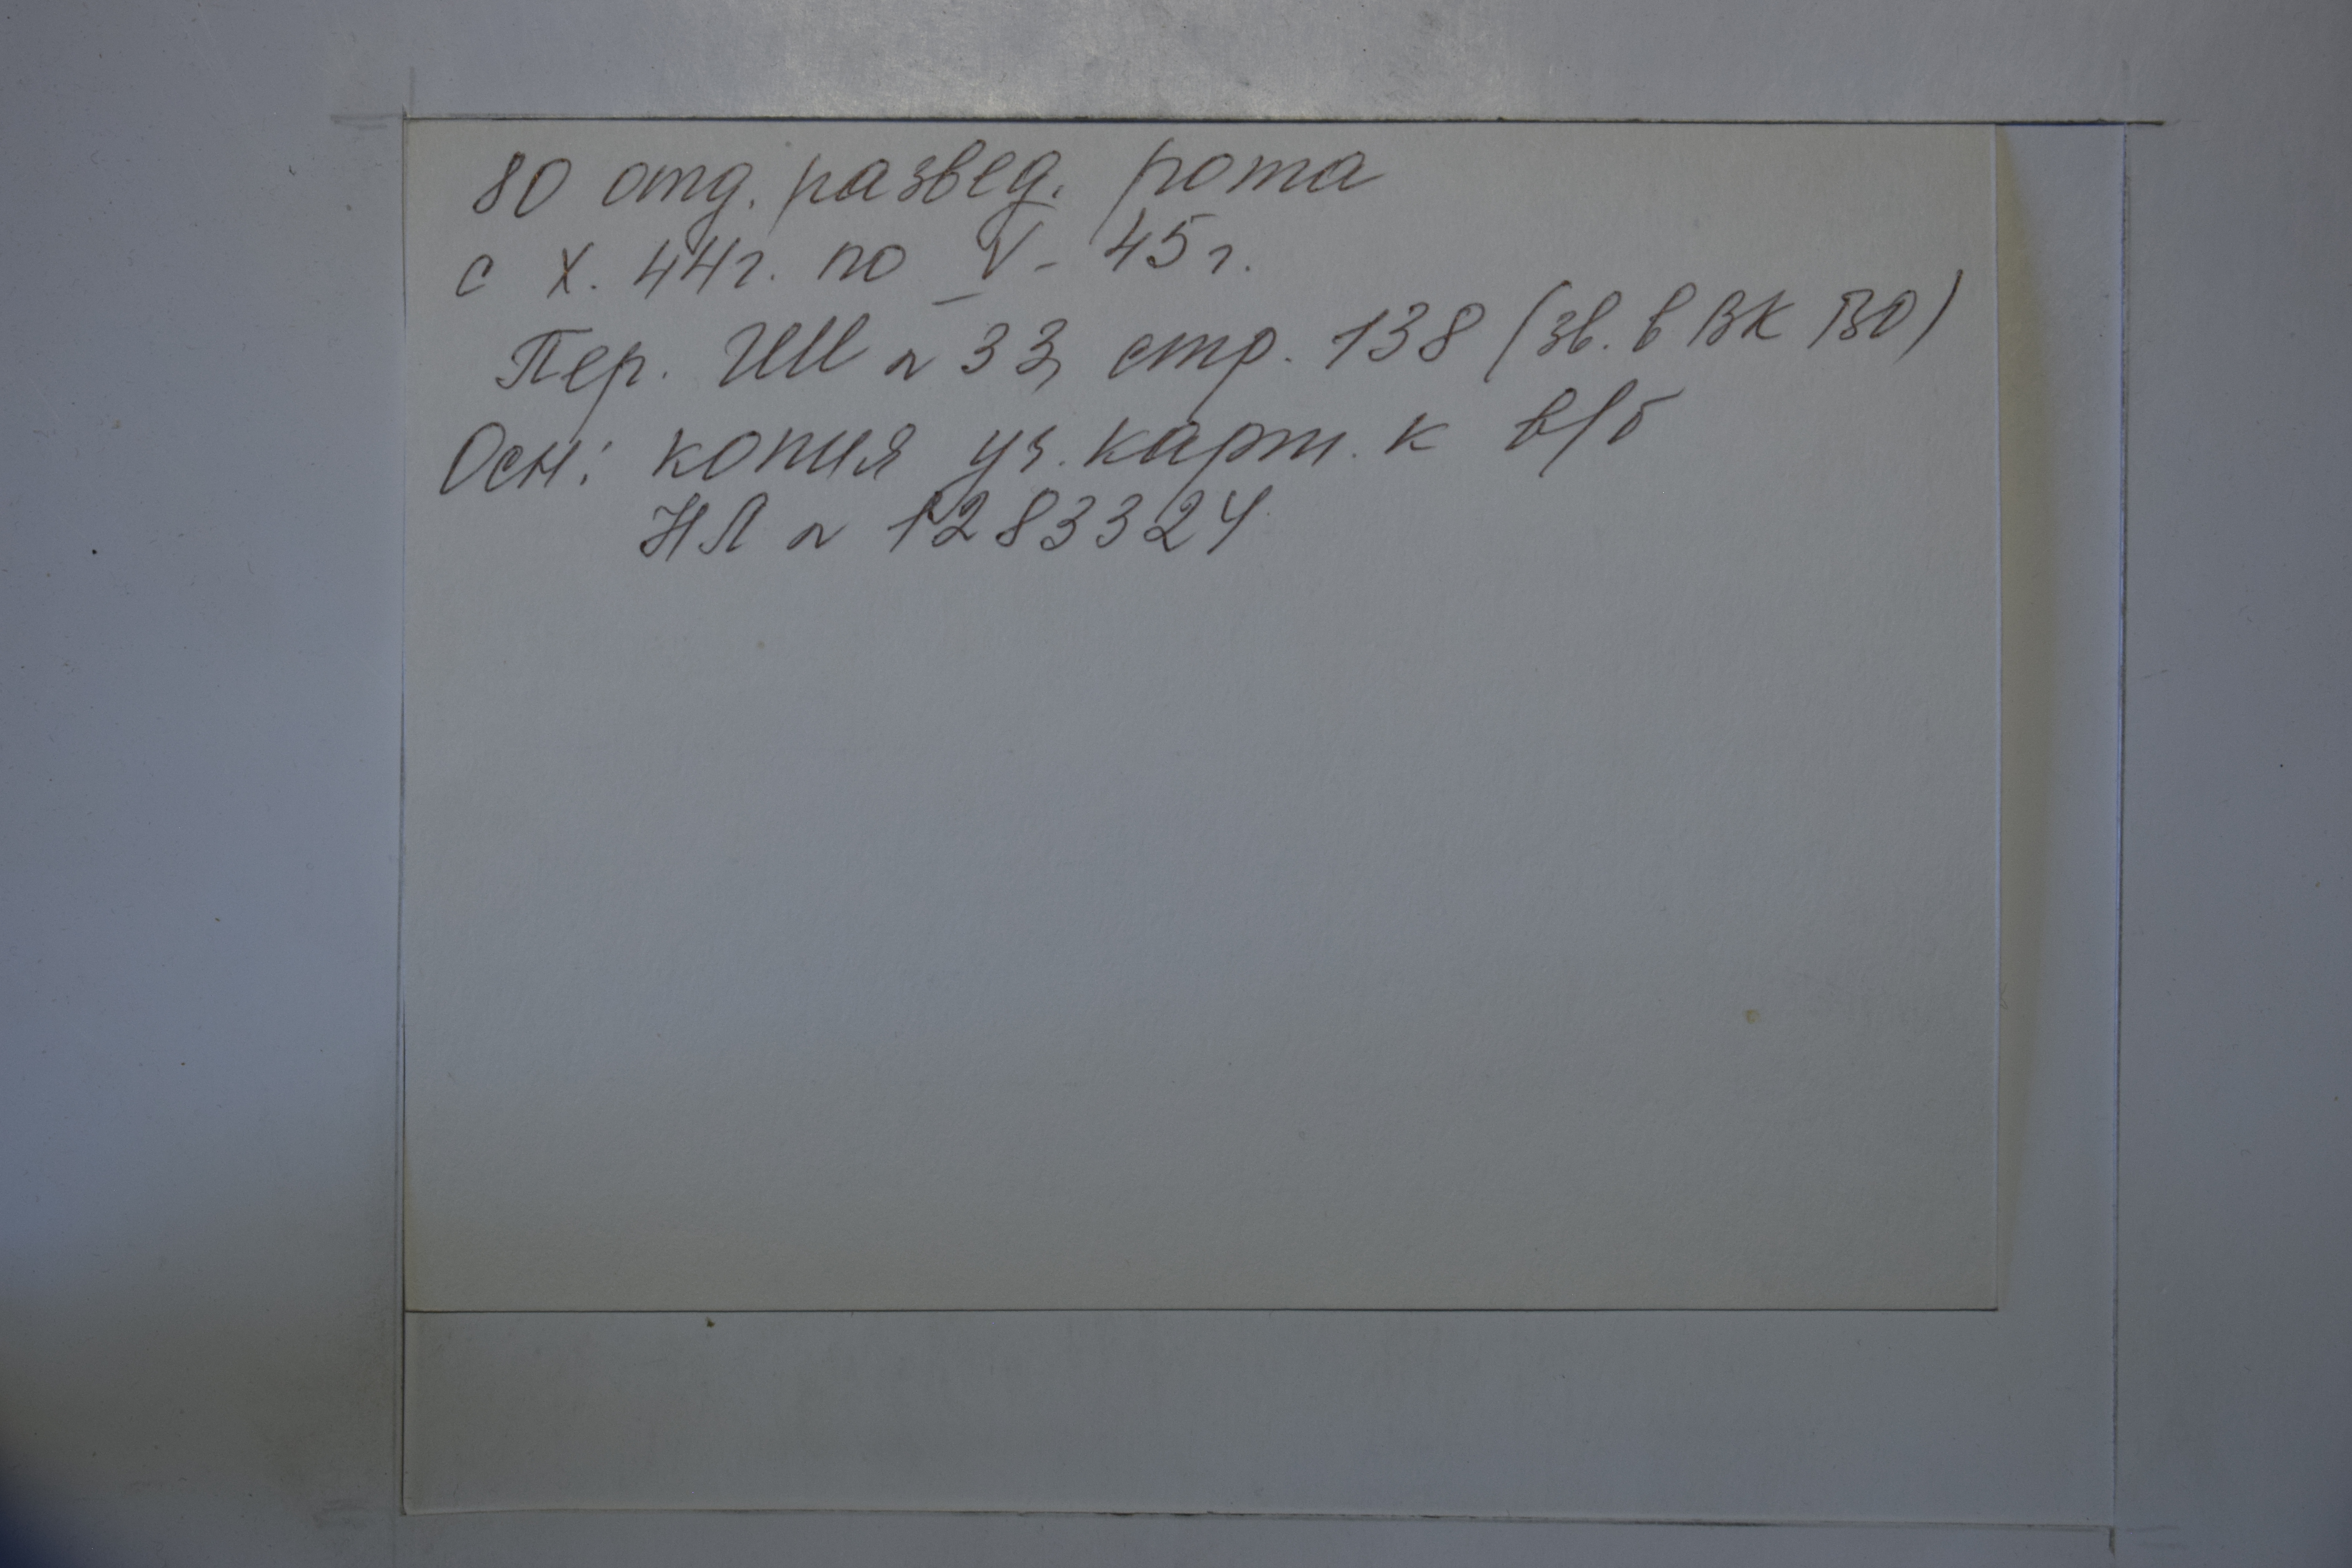 80 отд. развед. рота
с X. 44г. по V - 45г.
Пер. ГШ № 33, стр. 138 (зв. в ВК ВО)
Осн: копия уч. карт. к в/б
НЛ № 1283324